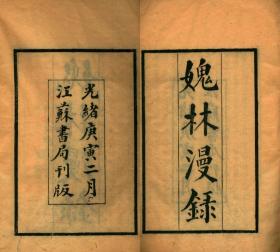 媿林漫録
光緒庚寅二月
江蘇書局刊版